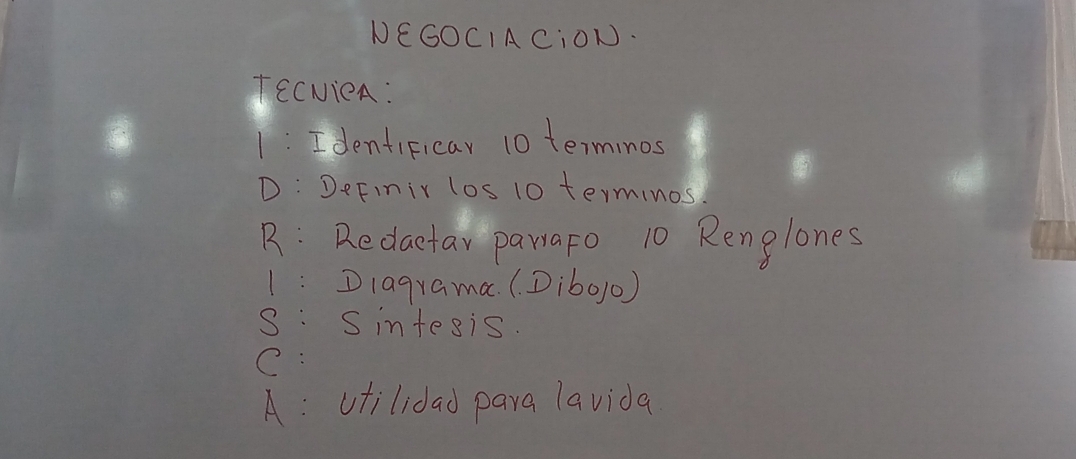 NEGOCIACION.
TECNICA:
I : Identificar 10 terminos
D : Definir los 10 terminos.
R : Redactar parrafo 10 Renglones
I : Diagrama (Dibojo)
S : Sintesis.
C :
A : utilidad para la vida